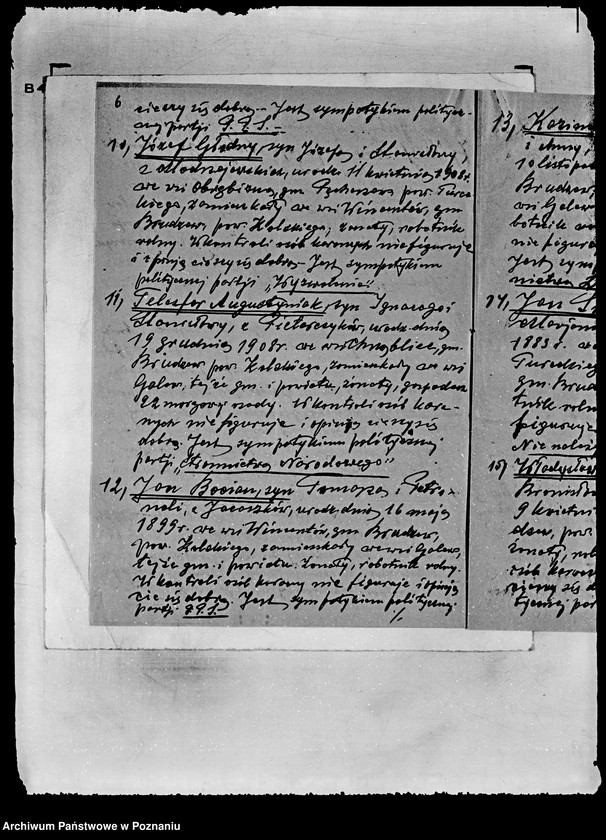 B
6
cieszy się dobrą.- Jest sympatykiem politycz-
nej partji P.P.S.-
10, Józef Głowny, syn Józefa i Stanisławy,
z urodz. 11 kwietnia 1908 r.
we wsi gm. pow. Ture-
ckiego, zamieszkały we wsi Wincentów, gm.
Brudzew, pow. Kolskiego, żonaty, robotnik
rolny. W kontroli osób karanych nie figuruje
i opinją cieszy się dobrą.- Jest sympatykiem
politycznej partji "Wyzwolenie"
11, Telesfor Augustyniak, syn Ignacego i
Stanisławy, z Pietrzyków, urodz. dnia
19 grudnia 1908 r. we wsi gm.
Brudzew pow. Kolskiego, zamieszkały we wsi
Galew, tejże gm. i powiatu, żonaty, gospodarz
22 morgowej osady. W kontroli osób kara-
nych nie figuruje i opinją cieszy się
dobrą. Jest sympatykiem politycznej
partji "Stronnictwa Narodowego"
12, Jan Bocian, syn Tomasza i Petro-
neli, z urodz. dnia 16 maja
1899 r. we wsi Wincentów, gm. Brudzew,
pow. Kolskiego, zamieszkały we wsi Galew,
tejże gm. i powiatu. Żonaty, robotnik rolny.
W kontroli osób karany nie figuruje i opinją
cie się dobrą. Jest sympatykiem politycznej
partji P.P.S.-
13, Kazim
i Anny,
10 listop
Brudzew,
wsi Galew
botnik
nie figur
Jest sym
nictwa
14, Jan S
Marjan
1883 r. w
Tureckie
gm. Brud
tnik roln
figuruje
Nie należ
15, Władysław
Bronisław
9 kwietn
dzew, pow.
żonaty, rob
osób karan
cieszy się d
tycznej par
Archiwum Państwowe w Poznaniu